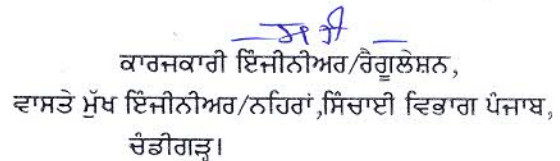 ਸਹੀ
ਕਾਰਜਕਾਰੀ ਇੰਜੀਨੀਅਰ/ਰੈਗੂਲੇਸ਼ਨ,
ਵਾਸਤੇ ਮੁੱਖ ਇੰਜੀਨੀਅਰ/ਨਹਿਰਾਂ,ਸਿੰਚਾਈ ਵਿਭਾਗ ਪੰਜਾਬ,
ਚੰਡੀਗੜ੍ਹ।